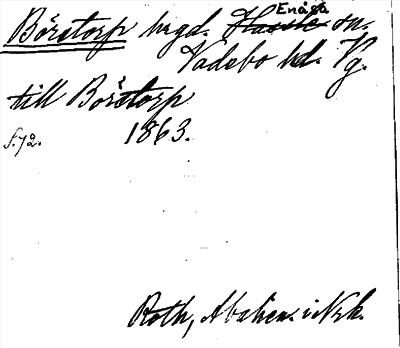 Börstorp bygd. Hassle Enåsa sn.
Vadsbo hd. Vg.
till Börstorp
f.yå. 1863.
Roth, i Nrk.